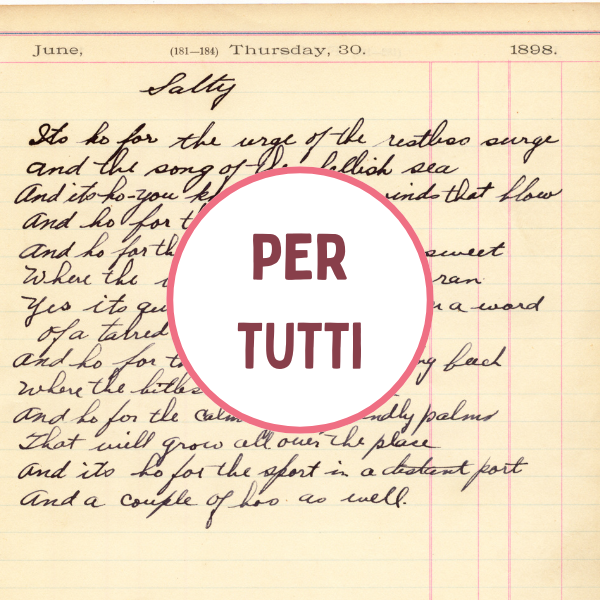 June, (181—184) Thursday, 30. 1898.
Salty
Its ho for the urge of the restless surge
and the song of the hellish sea
And its ho-you kn winds that blow
And ho for t
And ho for th sweet
Where the ran
Yes its qu n a word
of a tarred
And ho for th ng beech
Where the bitles
And ho for the calm ndly palms
That will grow all over the place
And its ho for the sport in a distant port
And a couple of hos as well.
PER
TUTTI